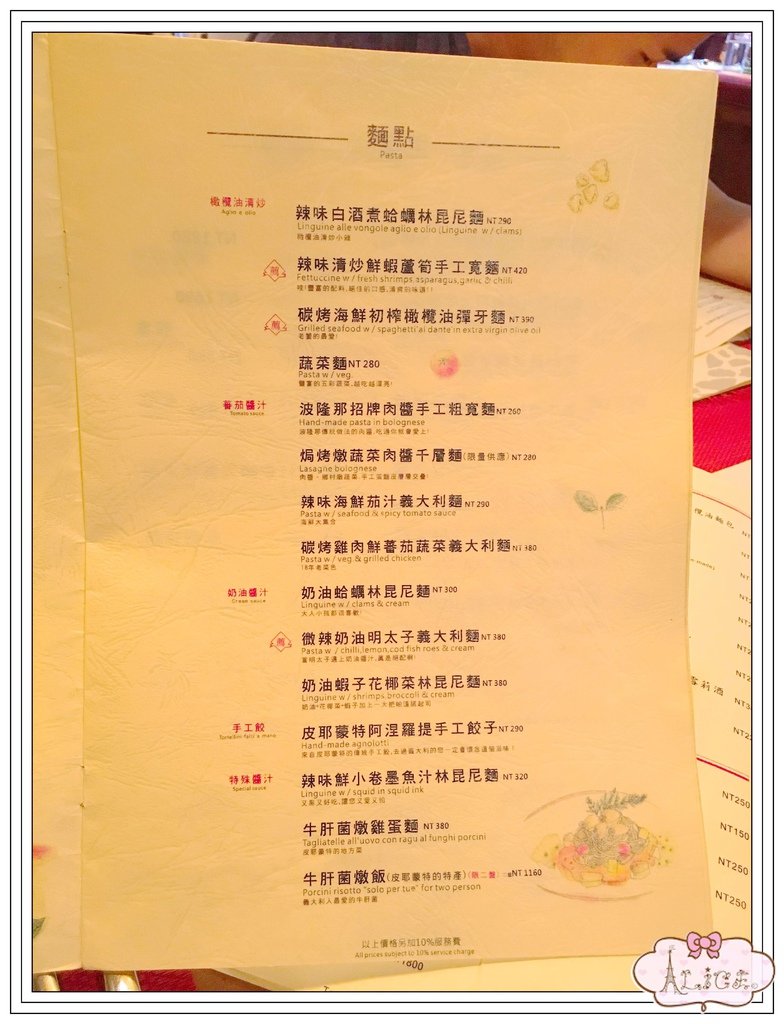 麵點
Pasta
橄欖油清炒
Aglio e olio
辣味白酒煮蛤蠣林昆尼麵 NT 290
Linguine alle vongole aglio e olio (Linguine w / clams)
辣味清炒鮮蝦蘆筍手工寬麵 NT 420
Fettuccine w / fresh shrimps,asparagus,garlic & chilli
碳烤海鮮初榨橄欖油彈牙麵 NT 390
Grilled seafood w / spaghetti al dante in extra virgin olive oil
老饕的最愛!
蔬菜麵 NT 280
Pasta w / veg.
豐富的五彩蔬菜,越吃越漂亮!
蕃茄醬汁
Tomato sauce
波隆那招牌肉醬手工粗寬麵 NT 260
Hand-made pasta in bolognese
波隆那傳統做法的肉醬,吃過你就會愛上!
焗烤燉蔬菜肉醬千層麵(限量供應) NT 280
Lasagne bolognese
辣味海鮮茄汁義大利麵 NT 290
Pasta w / seafood & spicy tomato sauce
海鮮大集合
碳烤雞肉鮮蕃茄蔬菜義大利麵 NT 380
Pasta w / veg.& grilled chicken
18年老菜色
奶油醬汁
Cream sauce
奶油蛤蠣林昆尼麵 NT 300
Linguine w / clams & cream
大人小孩都很喜歡!
微辣奶油明太子義大利麵 NT 380
Pasta w / chilli,lemon,cod fish roes & cream
當明太子遇上奶油醬汁,真是絕配啊!
奶油蝦子花椰菜林昆尼麵 NT 380
Linguine w / shrimps,broccoli & cream
手工餃
Tortellini fatti a mano
皮耶蒙特阿涅羅提手工餃子 NT 290
Hand-made agnolotti
特殊醬汁
Special sauce
辣味鮮小卷墨魚汁林昆尼麵 NT 320
Linguine w / squid in squid ink
又黑又好吃,讓您又愛又怕
牛肝菌燉雞蛋麵 NT 380
Tagliatelle all'uovo con ragu al funghi porcini
皮耶蒙特的地方菜
牛肝菌燉飯(皮耶蒙特的特產) NT 1160
Porcini risotto "solo per tue" for two person
義大利人最愛的牛肝菌
以上價格另加10%服務費
All prices subject to 10% service charge
NT250
NT150
NT250
NT250
ALICE